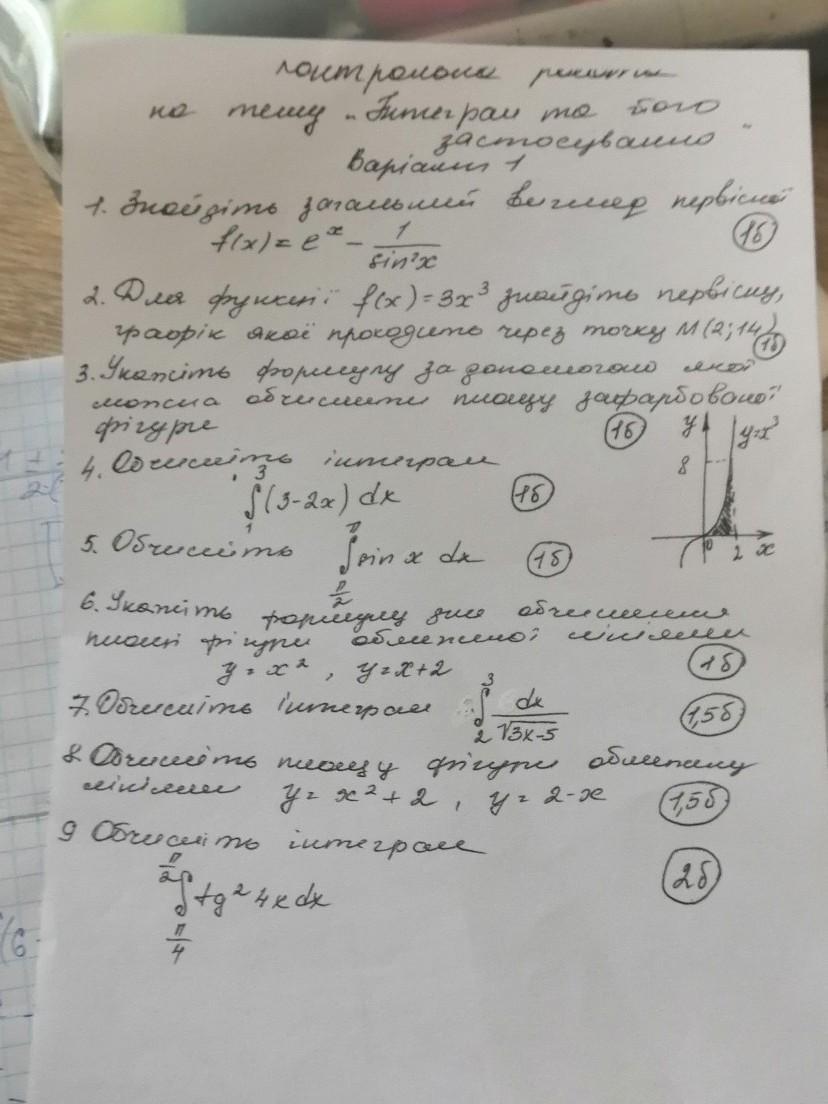 Контрольна робота
на тему „Інтеграл та його
застосування"
Варіант 1
1. Знайдіть загальний вигляд первісної
f(x) = e^x - 1/sin²x
1б
2. Для функції f(x) = 3x³ знайдіть первісну,
графік якої проходить через точку M(2;14)
1б
3. Укажіть формулу за допомогою якої
можна обчислити площу зафарбованої
фігури 1б
y y=x³
8
0 2 x
4. Обчисліть інтеграл
∫₁³(3-2x) dx 1б
5. Обчисліть ∫_{π/2}^{π} sin x dx 1б
6. Укажіть формулу для обчислення
площі фігури обмеженої лініями
y = x², y = x+2 1б
7. Обчисліть інтеграл ∫₂³ dx/√(3x-5) 1,5б
8. Обчисліть площу фігури обмежену
лініями y = x² + 2, y = 2-x 1,5б
9 Обчисліть інтеграл
∫_{π/4}^{π/2} tg² 4x dx 2б